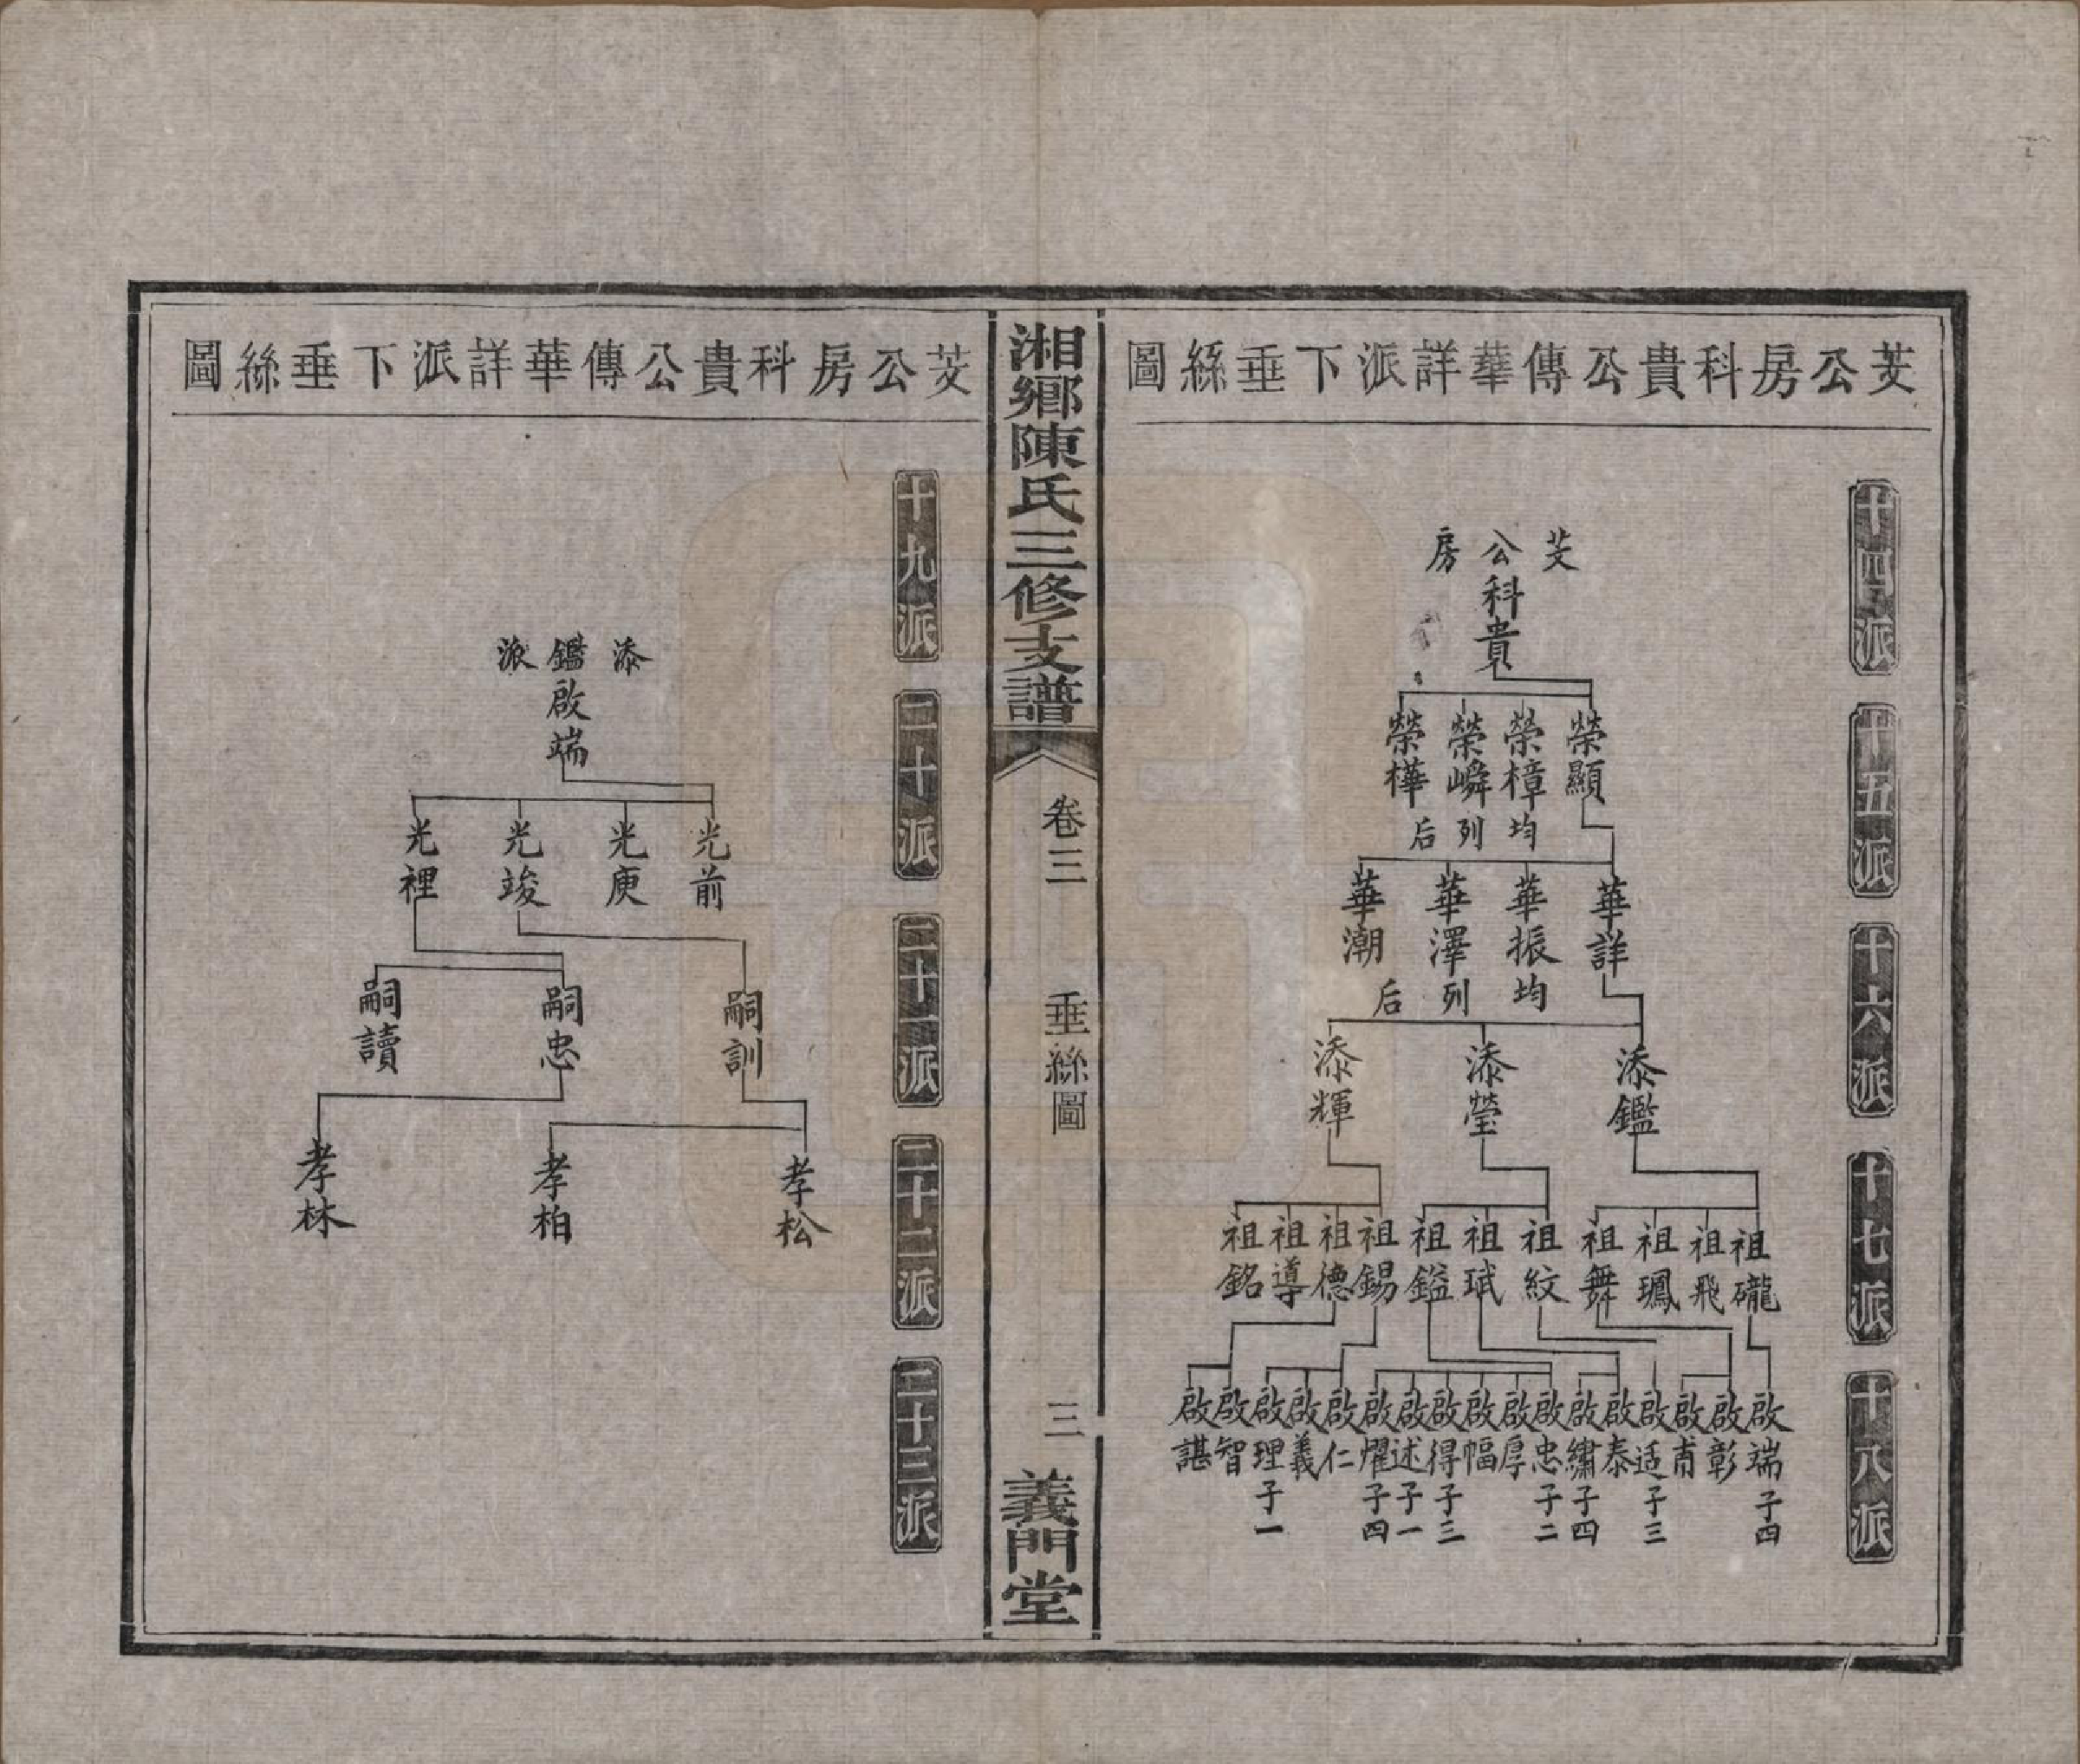 芰公房科貴公傳華詳派下垂絲圖
十四派
十五派
十六派
十七派
十八派
芰公房
科貴
榮顯
榮樟
榮嶙
榮樺
均列后
華詳
華振
華澤
華潮
均列后
添鑑
添瑩
添輝
祖礲
祖飛
祖鳳
祖舞
祖紋
祖珷
祖鎰
祖錫
祖德
祖導
祖銘
啟端 子四
啟彰
啟甫
啟适 子三
啟泰
啟繡 子四
啟忠 子二
啟厚
啟幅
啟得 子三
啟述 子一
啟燿 子四
啟仁
啟義
啟理 子一
啟智
啟諶
湘鄉陳氏三修支譜
卷三
垂絲圖
三
義門堂
芰公房科貴公傳華詳派下垂絲圖
十九派
二十派
二十一派
二十二派
二十三派
添鑑派
啟端
光前
光庚
光竣
光裡
嗣訓
嗣忠
嗣讀
孝松
孝柏
孝林